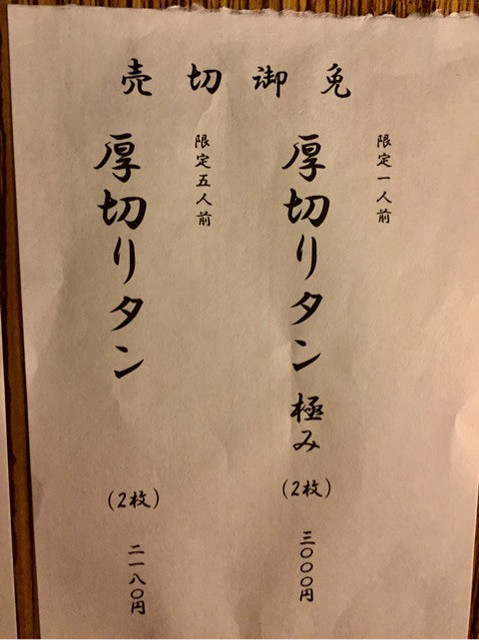 売切御免
限定一人前
厚切りタン極み(2枚)三〇〇〇円
限定五人前
厚切りタン(2枚)二一八〇円